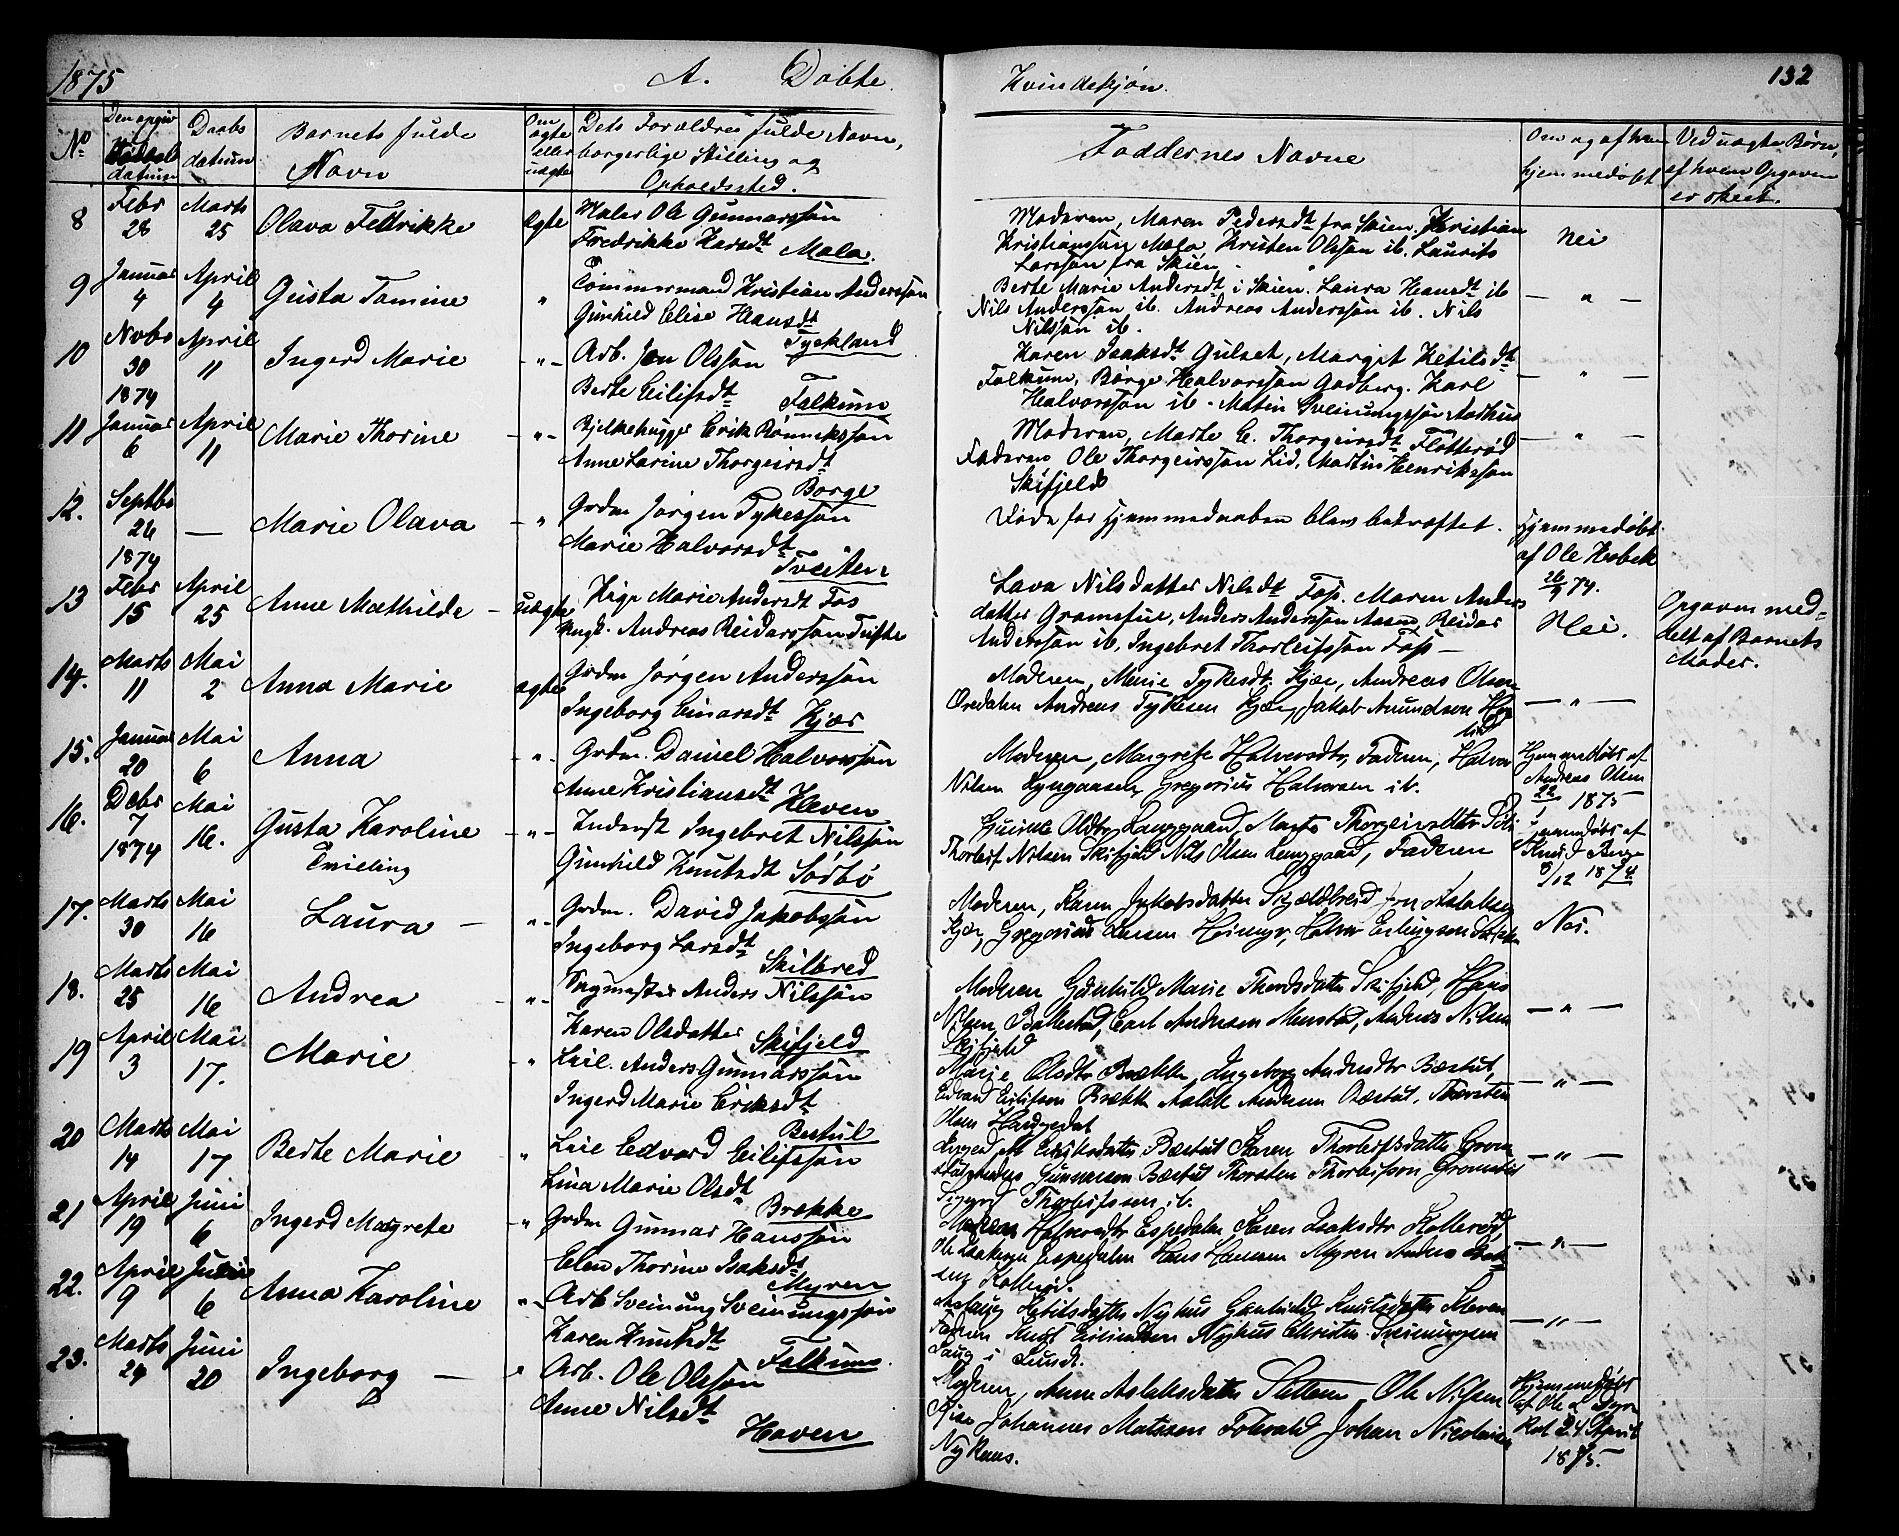 1875 A. Døbte Kvindekjøn. 132
No
Den opgiv
Fødsels
datum
Daabs
datum
Barnets fulde
Navn
Om
ægte
eller
uægte
Dets Forældres fulde Navn,
borgerlige Stilling og
Opholdssted.
Faddernes Navne
Om og af hvem
hjemmedøbt
Ved uægte Børn,
af hvem Opgaven
er skeet.
8 Febr 28 Marts 25 Olava Fredrikke ægte Maler Ole Gunnarssøn
Fredrikke Larsdt Mæla.
Moderen, Maren Pedersdt fra Skien. Kristian
Kristianssøn Mæla, Kristen Olssøn ib. Laurits
Larssøn fra Skien
Nei
9 Januar 4 April 4 Gusta Tomine " Tømmermand Kristian Anderssøn
Gunhild Elise Hansdt
Tyskland
Berte Marie Andersdt i Skien. Laura Hansdt ib
Nils Anderssøn ib. Andreas Anderssøn ib. Nils
Nilssøn ib.
— " —
10 Novbr 30 1874 April 11 Ingerd Marie - " - Arb. Jon Olssøn
Berte Eilifsdt Falkum
Karen Isaksdt Gulset, Margit Ketilsdt
Falkum, Børge Halvorssøn Godberg. Karl
Halvorssøn ib. Matin Sveinungssøn Aarhus
— " —
11 Januar 6 April 11 Marie Thorine - " - Bjelkehugger Erik Rønneksøn
Anne Larine Thorgeirsdt
Borge
Moderen, Marte E. Thorgeirsdt Flotterød
Faderen Ole Thorgeirssøn Lid, Martin Henrikssøn
Skifjeld
— " —
12. Septbr 26 1874 — Marie Olava - " Grdm Jørgen Tykessøn
Marie Halvorsdt
Tveiten
Døde før Hjemmedaaben blev bekræftet.
Hjemmedøbt
af Ole Hobek
26/9 74.
13 Febr 15 April 25 Anne Mathilde - uægte Pige Marie Andersdt Fos
Ungk. Andreas Reidarssøn Tufte
Lava Nilsdatter Nilsdt Fos. Maren Anders
datter Gromstul, Anders Anderssøn Aasen, Reidar
Anderssøn ib, Ingebret Thorleifssøn Fos —
Nei.
Opgaven med=
delt af Barnets
Moder.
14. Marts 11 Mai 2 Anna Marie ægte Grdm Jørgen Anderssøn
Ingeborg Einarsdt Kjær
Moderen, Marie Tykesdt. Kjær, Andreas Olsen
Øredalen Andreas Tykesen Kjær, Jakob Amundsen
— " —
15. Januar 20 Mai 6 Anna - " - Grdm. Daniel Halvorssøn
Anne Kristiansdt Haven
Moderen, Margrete Halvorsdtr, Faderen, Halvor
Nilsen Lyngaasen, Gregorius Halvorsen ib.
Hjemmedøbt af
Andreas Olsen
22 1875
16. Debr 7 1874 Mai 16. Gusta Karoline
Tvieling - " - Inderst Ingebret Nilssøn
Gunhild Knutsdt Sørbø
Gurine Olsdtr Langgaard, Marte Thorgeirsdatter
Thorleif Nilsen Skifjeld Nils Olsen Langgaard, Faderen
Hjemmedøbt af
Knud Berge
8/12 1874
17. Marts 30 Mai 16 Laura — - " - Grdm. David Jakobssøn
Ingeborg Larsdt
Skilbred
Moderen, Karen Jakobsdatter Skjeldbreid,
Kjær, Gregorius Larsen Heimyr, Halvor Erlingsen
Nei.
18. Marts 25 Mai 16 Andrea - " - Anders Nilssøn
Karen Olsdatter Skifjeld
Moderen Gunhild Marie Thordsdatter Skifjeld, Hans
Nilsen Ballestad, Carl Andersen Menstad, Anders Nilsen
Skifjeld
— " —
19 April 3 Mai 17. Marie - " Leil. Anders Gunnarssøn
Ingerd Marie Eriksdt
Bestul
Marie Olsdtr Brække, Ingeborg Andersdtr Bæstul,
Edvard Eilifsen Brække Aslak Andersen Bæstul. Thorsten
Olsen
— " —
20 Marts 14 Mai 17 Berte Marie " Leil Edvard Eilifssøn
Lina Marie Olsdt
Brække
Ingerd M Eriksdatter Bæstul Karen Thorleifsdatter Grom
stul, Anders Gunnarsen Bæstul Thorsten Thorleifsen Gromstul
Thorleifssen ib.
— " —
21 April 19 Juni 6 Ingerd Margrete - " Grdm Gunnar Hanssøn
Elen Thorine Isaksdt
Myren
Moderen Halvorsdtr Espedalen, Karen Isaksdtr Kollerød
Ole Isaksen Espedalen Hans Hansen Myren Anders
Kollerød.
— " —
22. April 9 Juni 6 Anna Karoline " - Arb Sveinung Sveinungssøn
Karen Knutsdt
Falkum.
Aslaug Ketilsdatter Nyhus Gunhild Knutsdatter Kleven
Faderen Knut Nyhus Christen Sveinungsen
— " —
23. Marts 24 Juni 20 Ingeborg — " Arb. Ole Olssøn
Anne Nilsdt
Haven
Moderen, Anne Aslaksdatter Ole Nilsen
Johannes Matssen Folvald Johan Nicolaisen
Nykaas.
Hjemmedøbt
af Ole
24 April
1875.